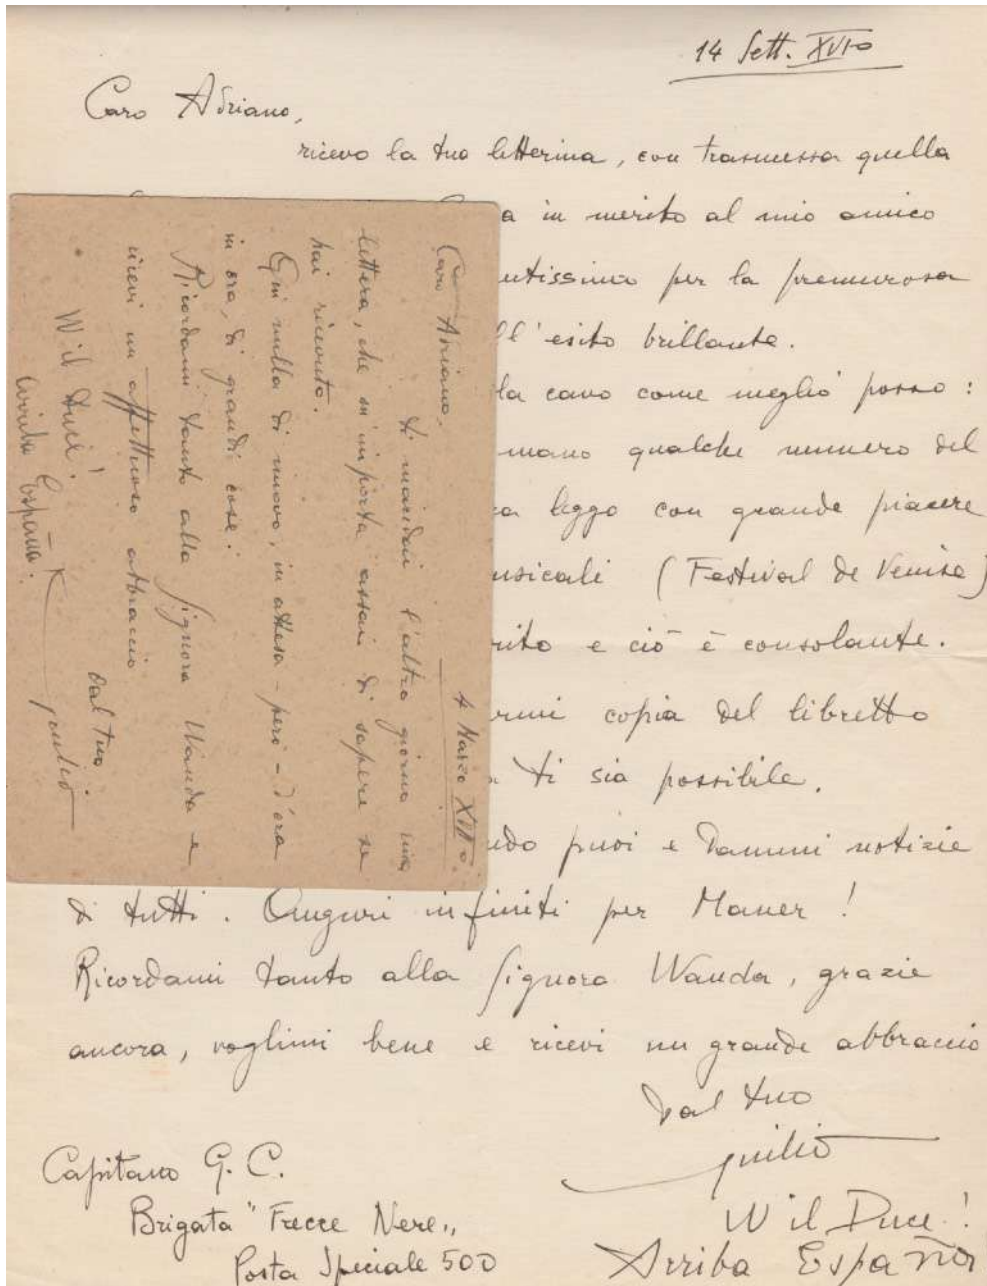 14 Sett. XVIº
Caro Adriano,
ricevo la tua letterina, con trasmessa quella
a in merito al mio amico
utissimo per la premurosa
ll'esito brillante.
la cavo come meglio posso:
mano qualche numero del
leggo con grande piacere
usicali (Festival de Venise)
rito e ciò è consolante.
rmi copia del libretto
ti sia possibile.
ndo puoi e dammi notizie
di tutti. Auguri infiniti per Maner!
Ricordami tanto alla Signora Wanda, grazie
ancora, voglimi bene e ricevi un grande abbraccio
dal tuo
Giulio
W il Duce!
Arriba España
Capitano G. C.
Brigata "Frecce Nere"
Posta Speciale 500
4 Marzo
Caro Adriano,
ti mandai l'altro giorno una
lettera, che m'importa assai di sapere se
hai ricevuto.
Qui nulla di nuovo, in attesa - però - d'ora
in ora, di grandi cose.
Ricordami tanto alla Signora Wanda e
ricevi un affettuoso abbraccio
dal tuo
Giulio
W il Duce!
Arriba España!